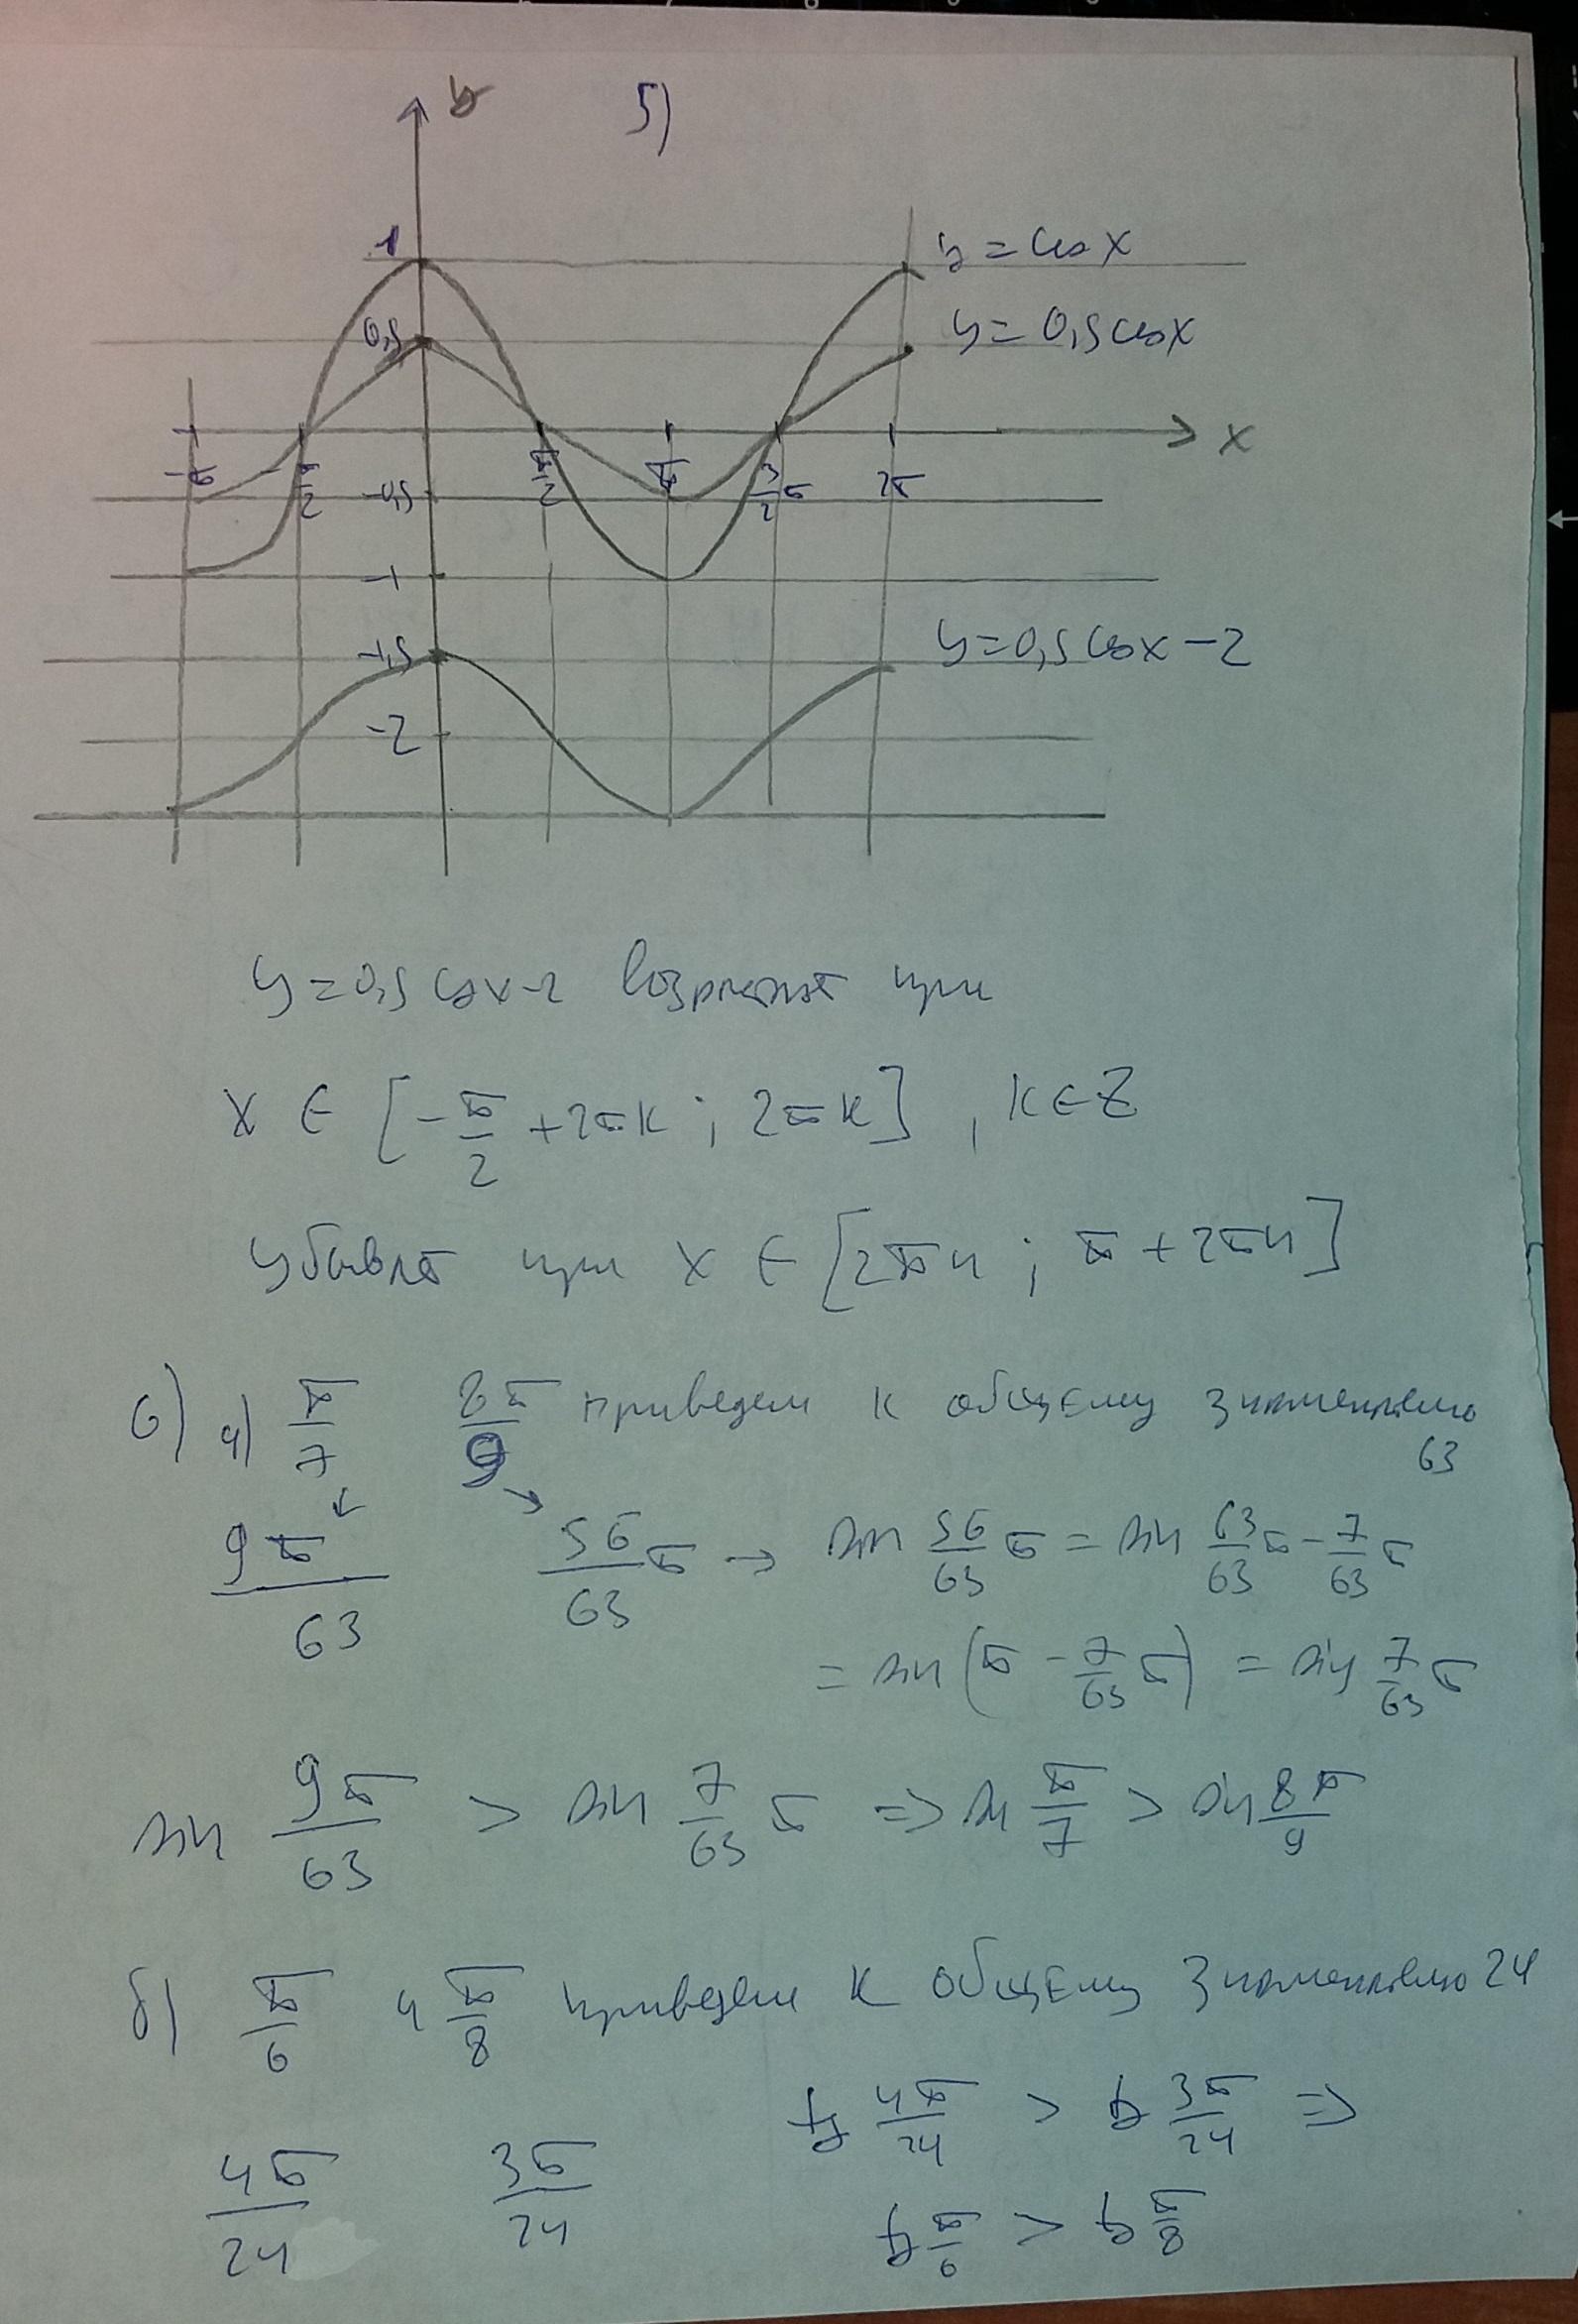 y
5)
1
y = cos x
0,5
y = 0,5 cos x
x
-π
-π/2
-0,5
π/2
π
3/2 π
2π
-1
-1,5
y = 0,5 cos x - 2
-2
y = 0,5 cos x - 2 возрастает при
x ∈ [-π/2 + 2πk ; 2πk] , k ∈ Z
убывает при x ∈ [2πn ; π + 2πn]
6) а) π/7 8π/9 приведем к общему знаменателю
63
9π/63 56/63 π → sin 56/63 π = sin 63/63 π - 7/63 π
= sin (π - 7/63 π) = sin 7/63 π
sin 9π/63 > sin 7/63 π => sin π/7 > sin 8π/9
б) π/6 и π/8 приведем к общему знаменателю 24
tg 4π/24 > tg 3π/24 =>
4π/24 3π/24
tg π/6 > tg π/8